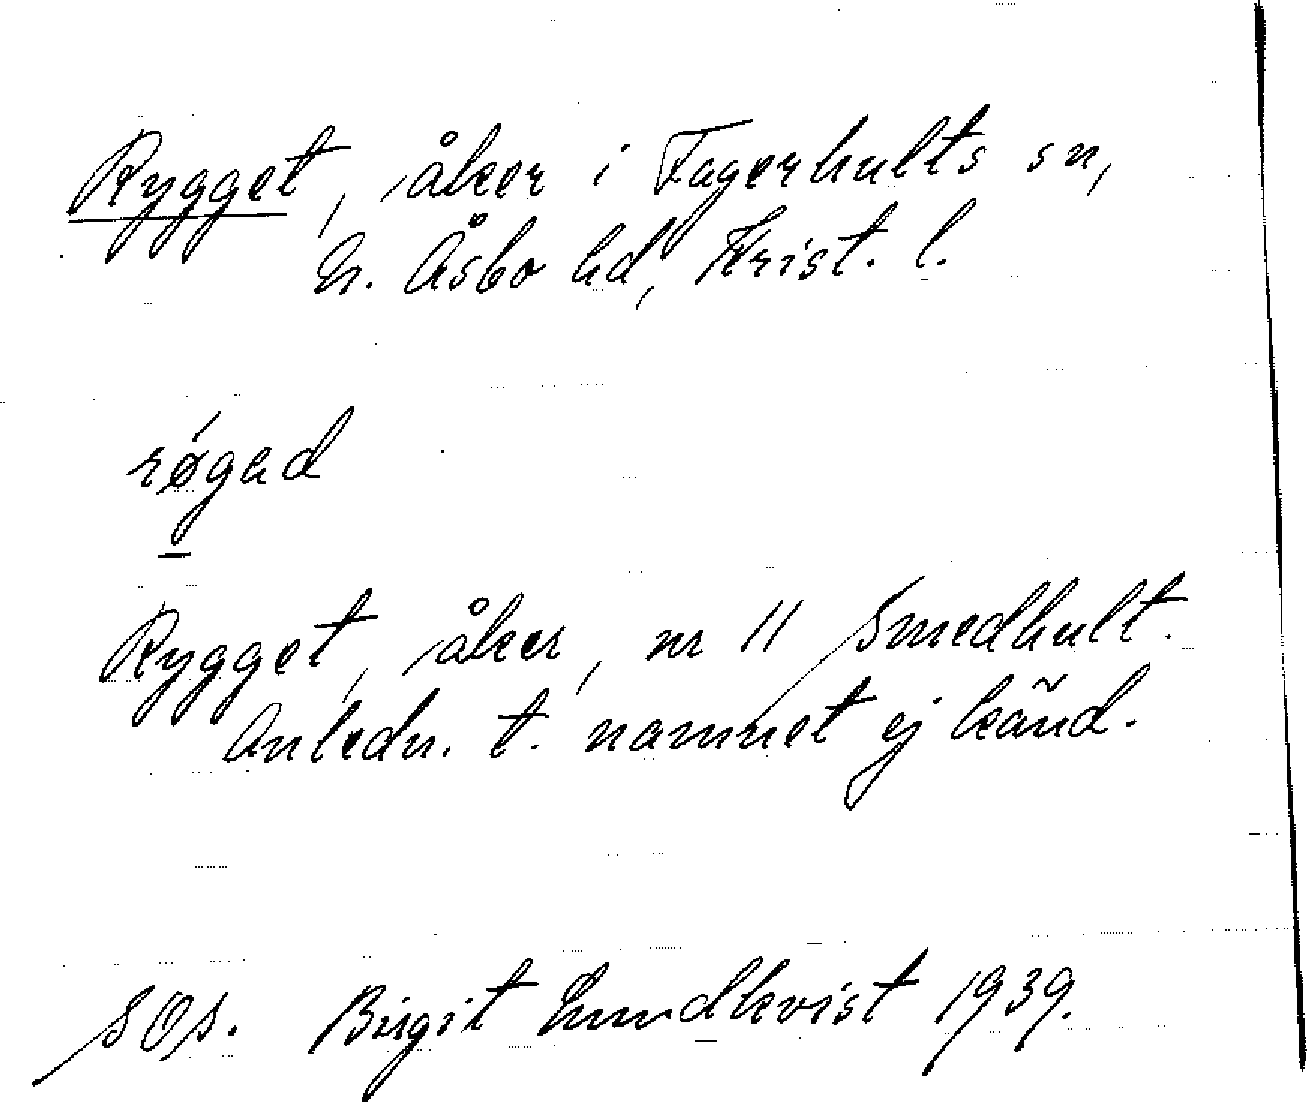 Rygget, åker i Fagerhults sn,
N. Åsbo hd, Krist. l.
røgad
Rygget, åker, nr 11 Smedhult.
Anledn. t. namnet ej känd.
SOS. Birgit Lundkvist 1939.